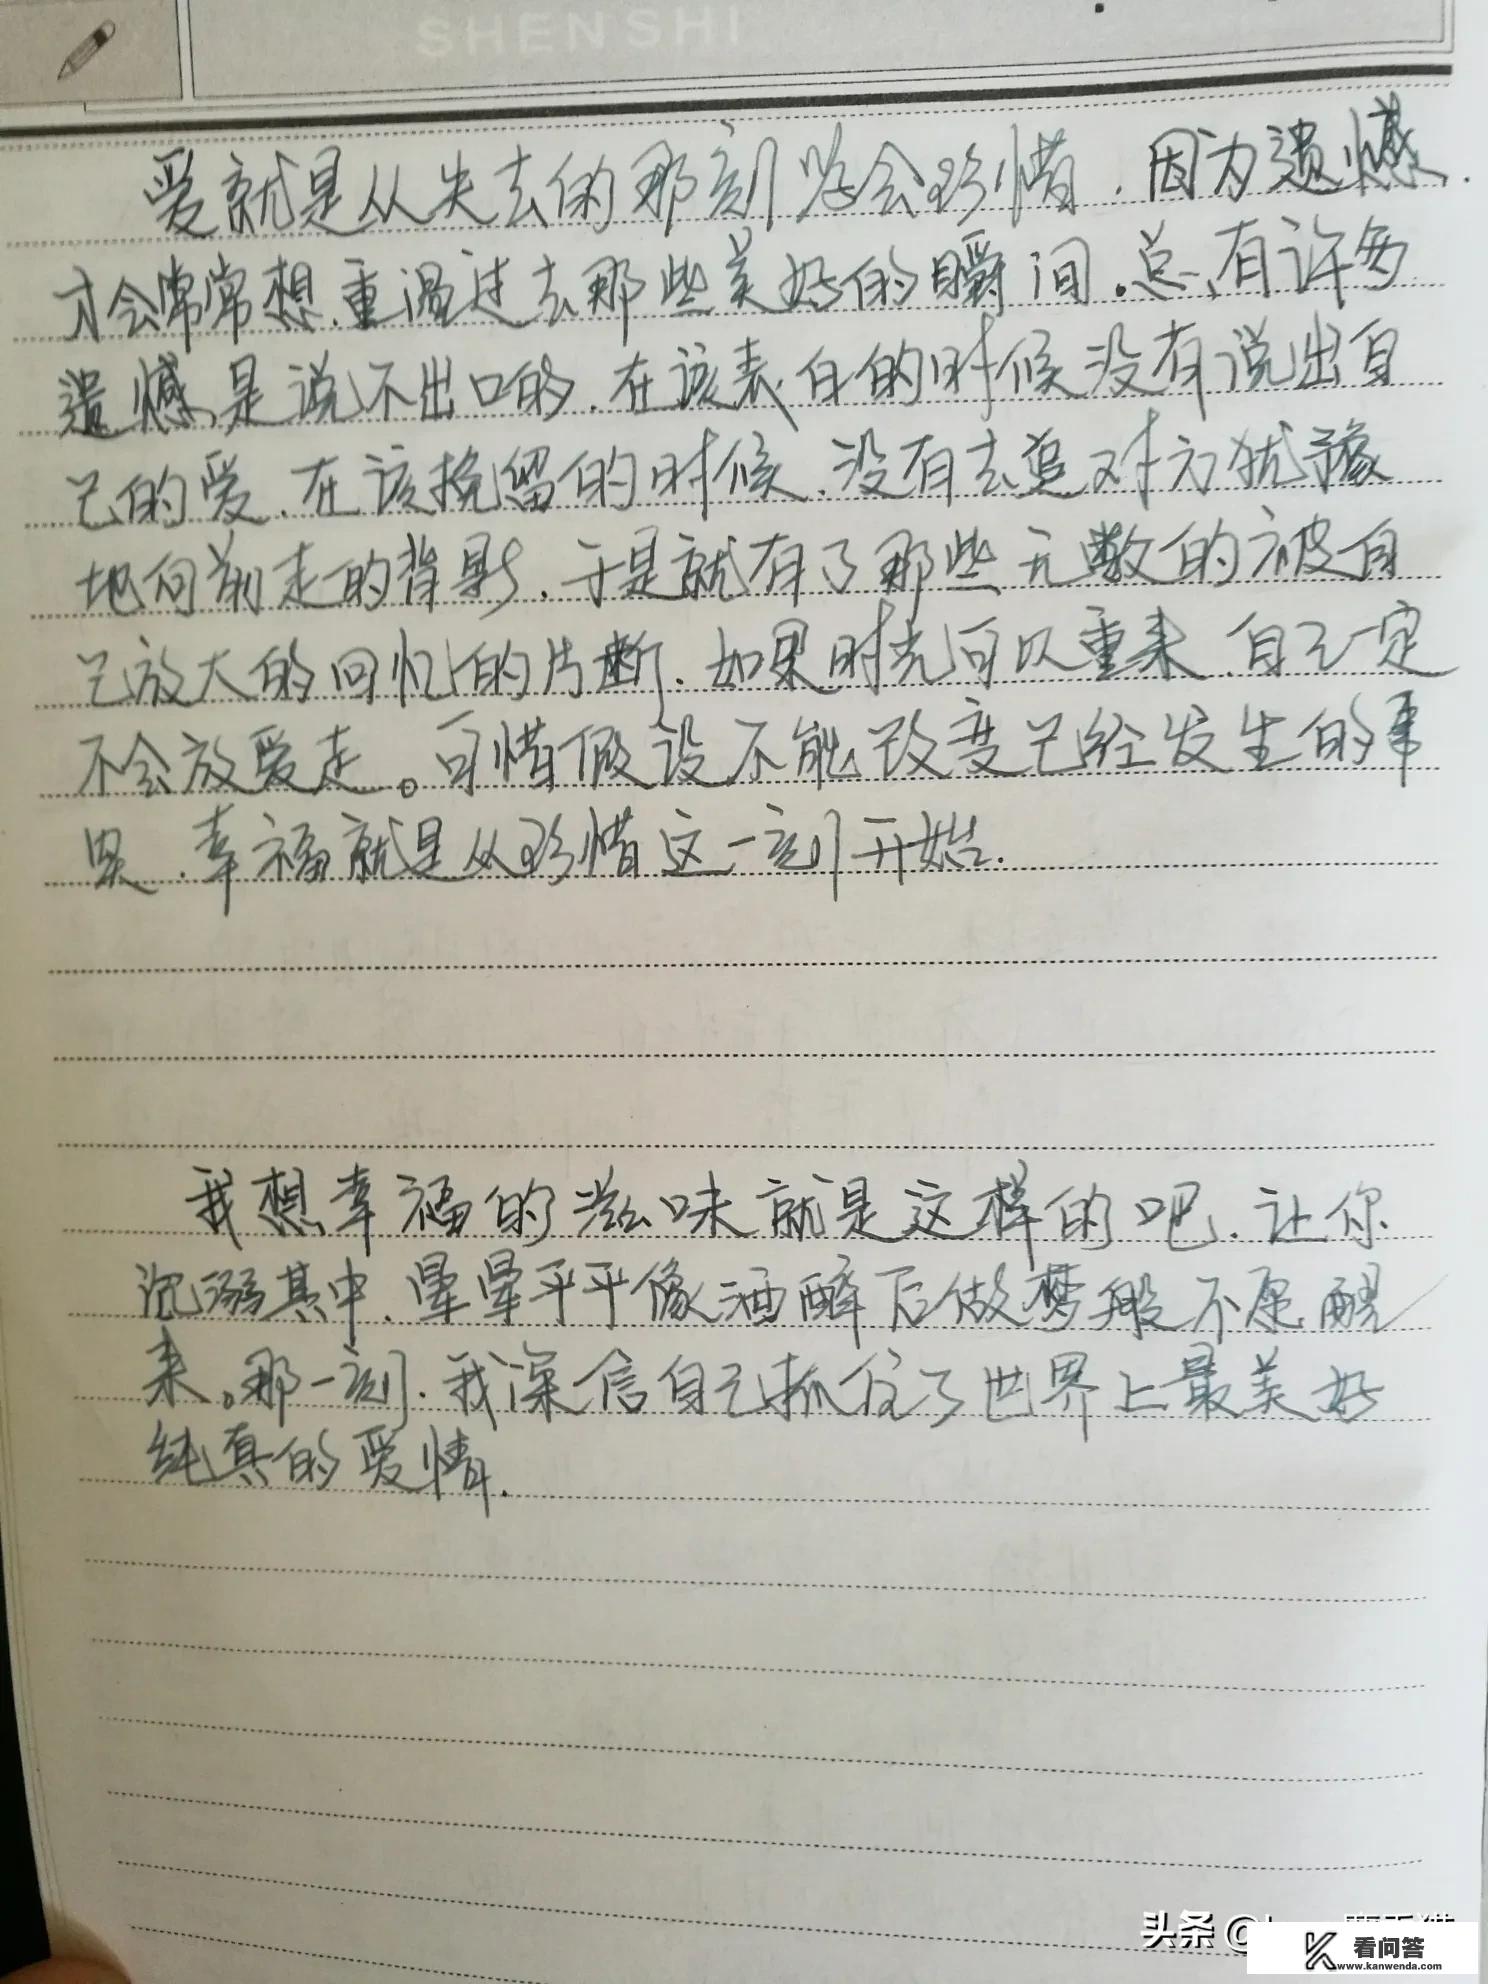 SHENSHI
爱就是从失去的那刻学会珍惜，因为遗憾，
才会常常想，重温过去那些美好的瞬间。总有许多
遗憾是说不出口的，在该表白的时候没有说出自
己的爱，在该挽留的时候，没有去追对方犹豫
地向前走的背影，于是就有了那些无数的被自
己放大的回忆的片断，如果时光可以重来，自己一定
不会放爱走。可惜假设不能改变已经发生的事
果，幸福就是从珍惜这一刻开始.
我想幸福的滋味就是这样的吧，让你
沉溺其中，晕晕乎乎像酒醉后做梦般不愿醒
来。那一刻，我深信自己抓住了世界上最美好
纯真的爱情.
头条
看问答
www.kanwenda.com